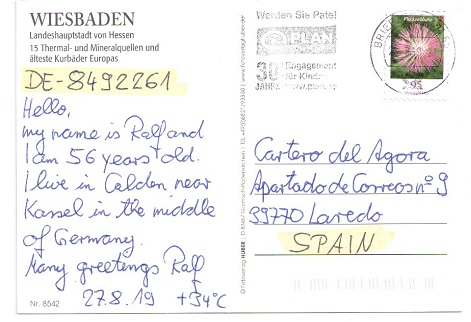 WIESBADEN
Landeshauptstadt von Hessen
15 Thermal- und Mineralquellen und
älteste Kurbäder Europas
DE-8492261
Hello,
my name is Ralf and
I am 56 years old.
I live in Calden near
Kassel in the middle
of Germany.
Many greetings Ralf
27.8.19 +34°C
Nr. 8542
Werden Sie Pate!
PLAN
30 Engagement
für Kinder
JAHRE
BRIE
95
Cartero del Agora
Apartado de Correos nº 9
39770 Laredo
SPAIN